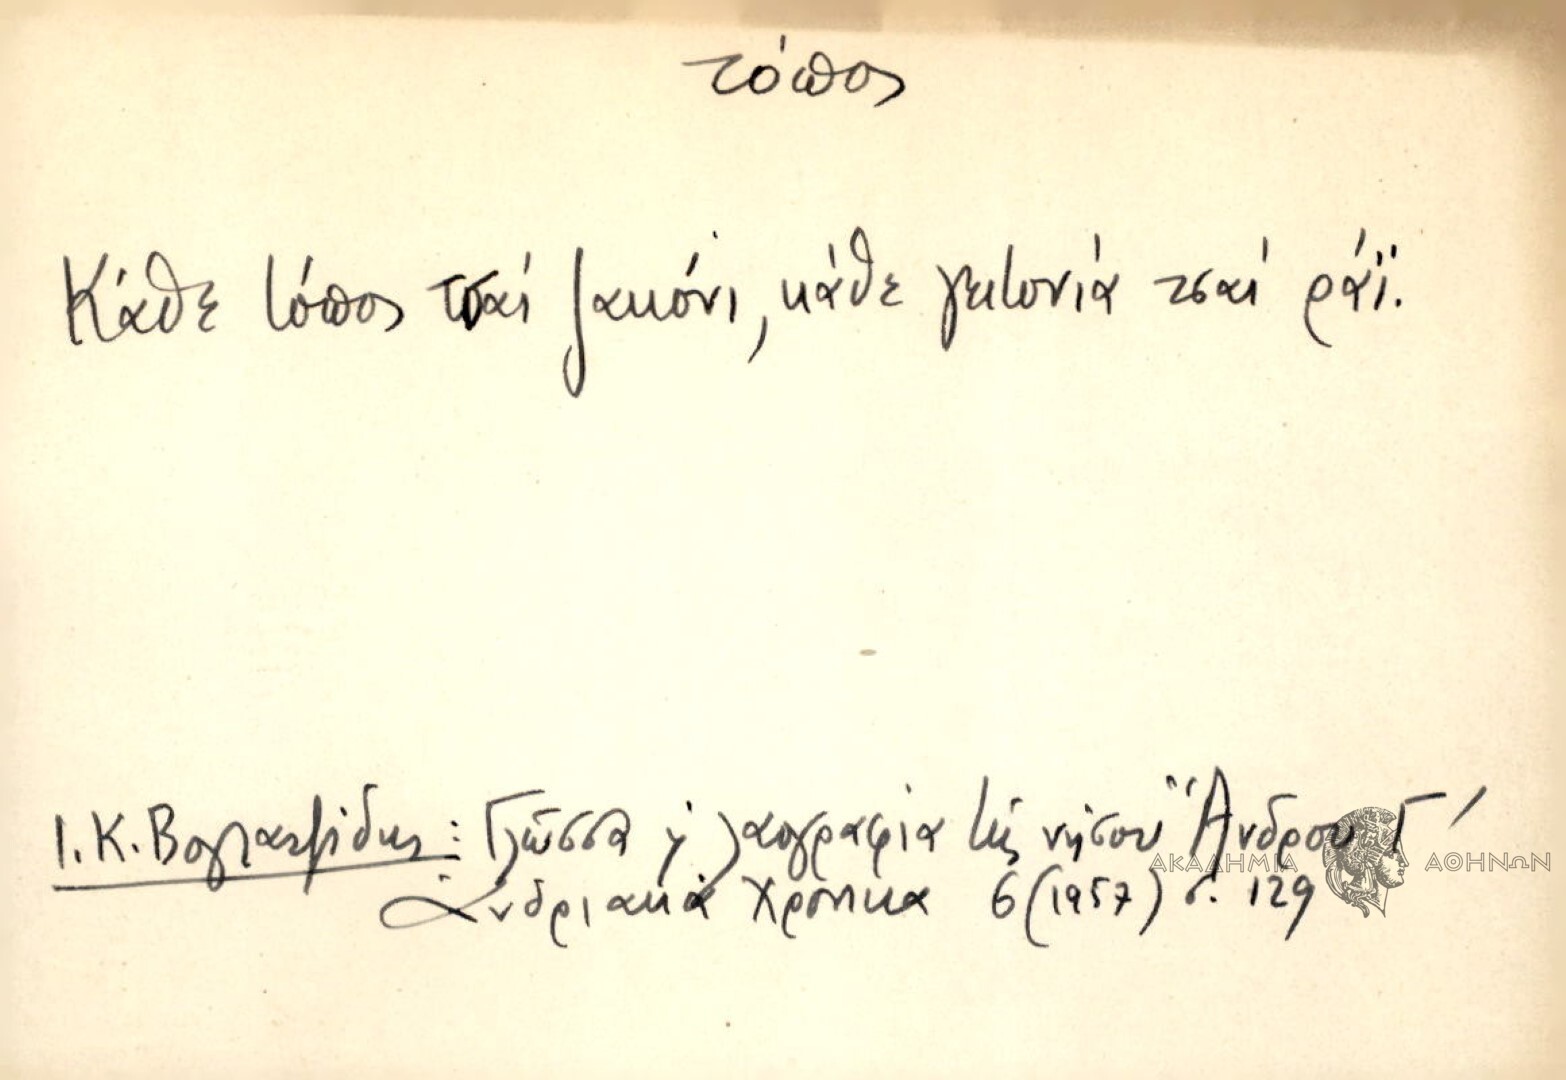 τόπος
Κάθε τόπος τσαί ζακόνι, κάθε γειτονιά τσαί ράϊ.
Ι. Κ. Βογιατζίδης: Γλῶσσα κ' λαογραφία τῆς νήσου Ἄνδρου Γ'
Ἀνδριακά Χρονικα 6 (1957) σ. 129
ΑΚΑΔΗΜΙΑ ΑΘΗΝΩΝ